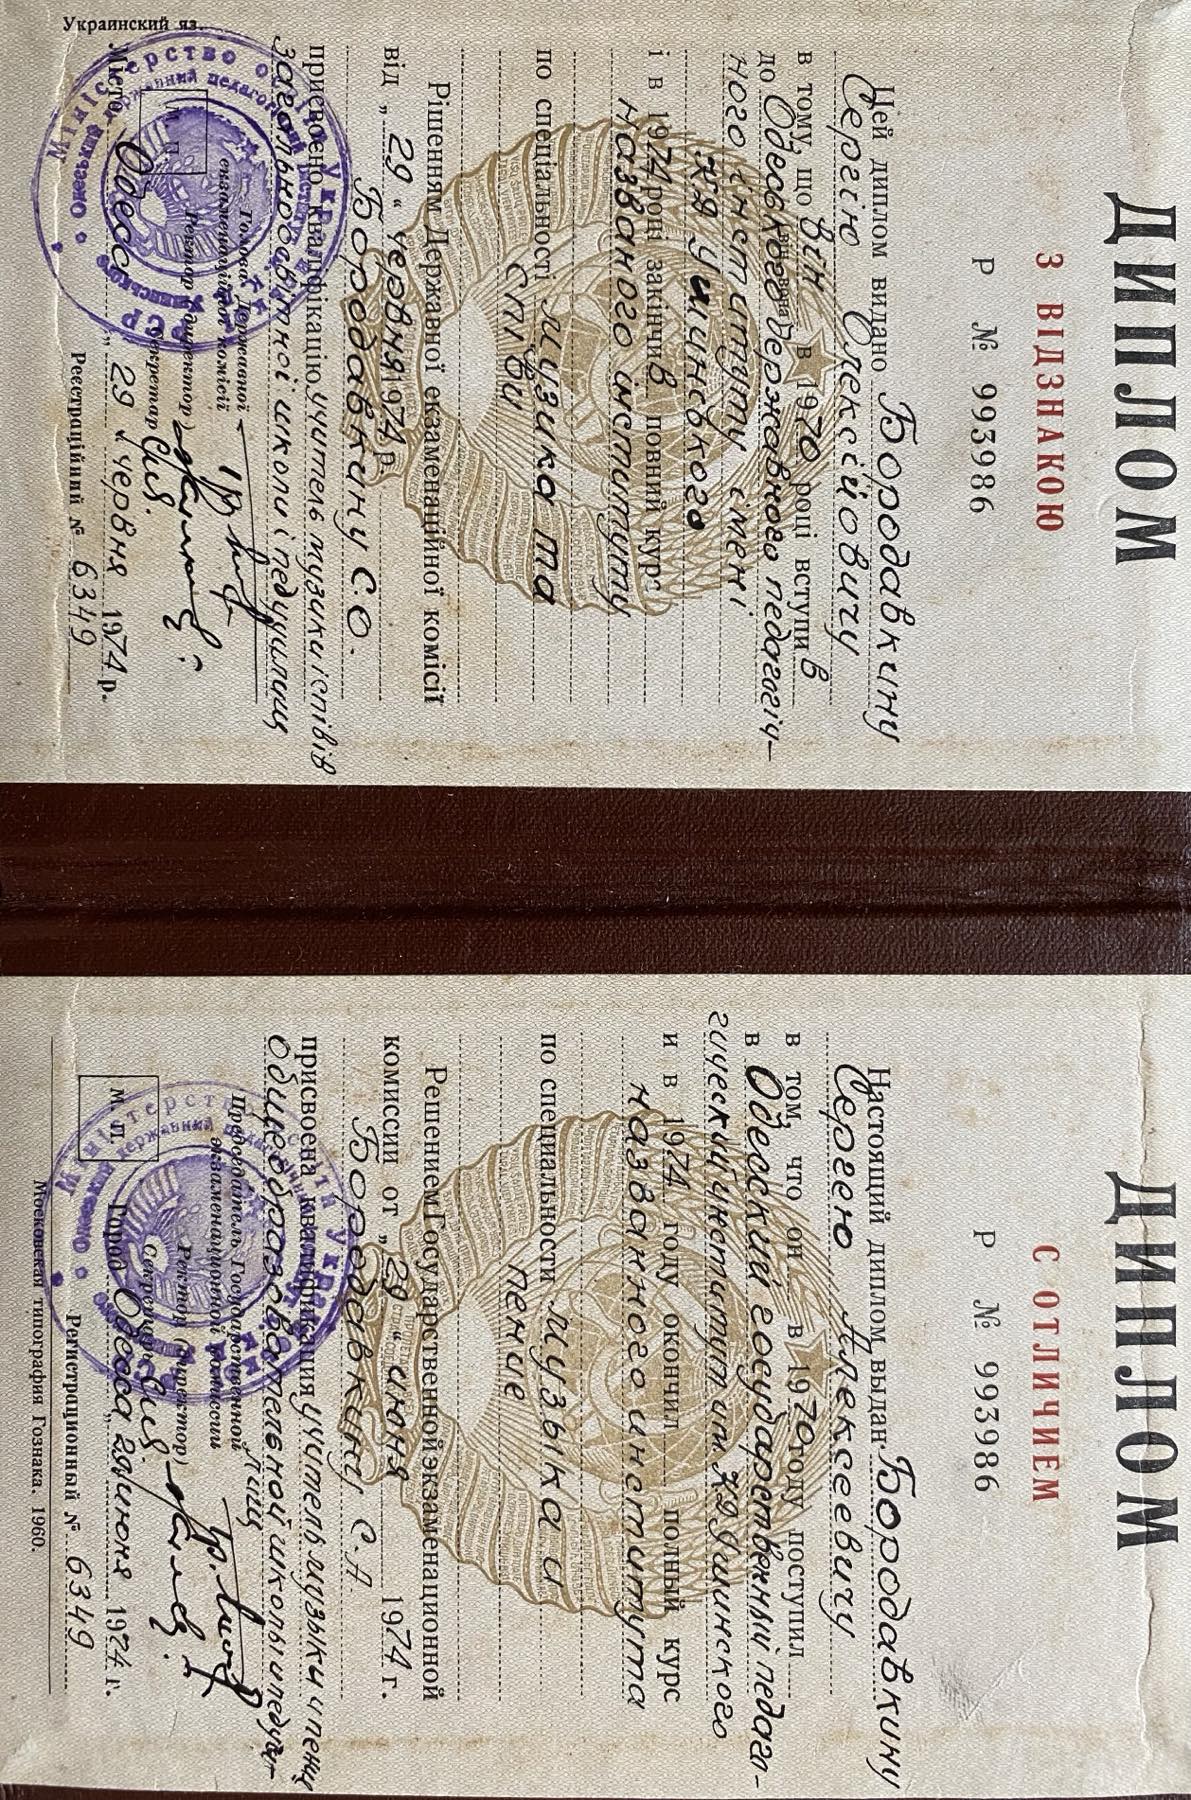 ДИПЛОМ
З ВІДЗНАКОЮ
Р № 993986
Цей диплом видано Бородавкину
Сергію Олексійовичу
в тому, що він в 1970 році вступив
до Одеського Державного педагогіч-
ного інституту імені
К.Д. Ушинського
і в 1974 році закінчив повний курс
названого інституту
по спеціальності музика та
співи
Рішенням Державної екзаменаційної комісії
від „29" червня 1974 р.
Бородавкину С.О.
присвоено кваліфікацію учитель музики і співів
загальноосвітньої школи і педучилищ
Голова Державної
екзаменаційної комісії
Ректор (директор)
Секретар
М. П.
Місто Одеса „29" червня 1974 р.
Реєстраційний № 6349
Украинский яз.
ДИПЛОМ
С ОТЛИЧИЕМ
Р № 993986
Настоящий диплом выдан Бородавкину
Сергею Алексеевичу
в том, что он в 1970 году поступил
в Одесский государственный педаго-
гический институт им. К.Д. Ушинского
и в 1974 году окончил полный курс
названного института
по специальности музыка и
пение
Решением Государственной экзаменационной
комиссии от „29" июня 1974 г.
Бородавкину С.А
присвоена квалификация учитель музыки и пения
общеобразовательной школы и педучи-
лищ
Председатель Государственной
экзаменационной комиссии
Ректор (директор)
Секретарь
М. П.
Город Одесса „29" июня 1974 г.
Регистрационный № 6349
Московская типография Гознака. 1960.